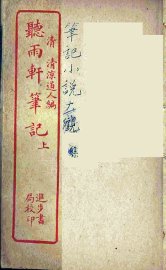 清 清涼道人編
聽雨軒筆記 上
進步書局校印
筆記小說大觀